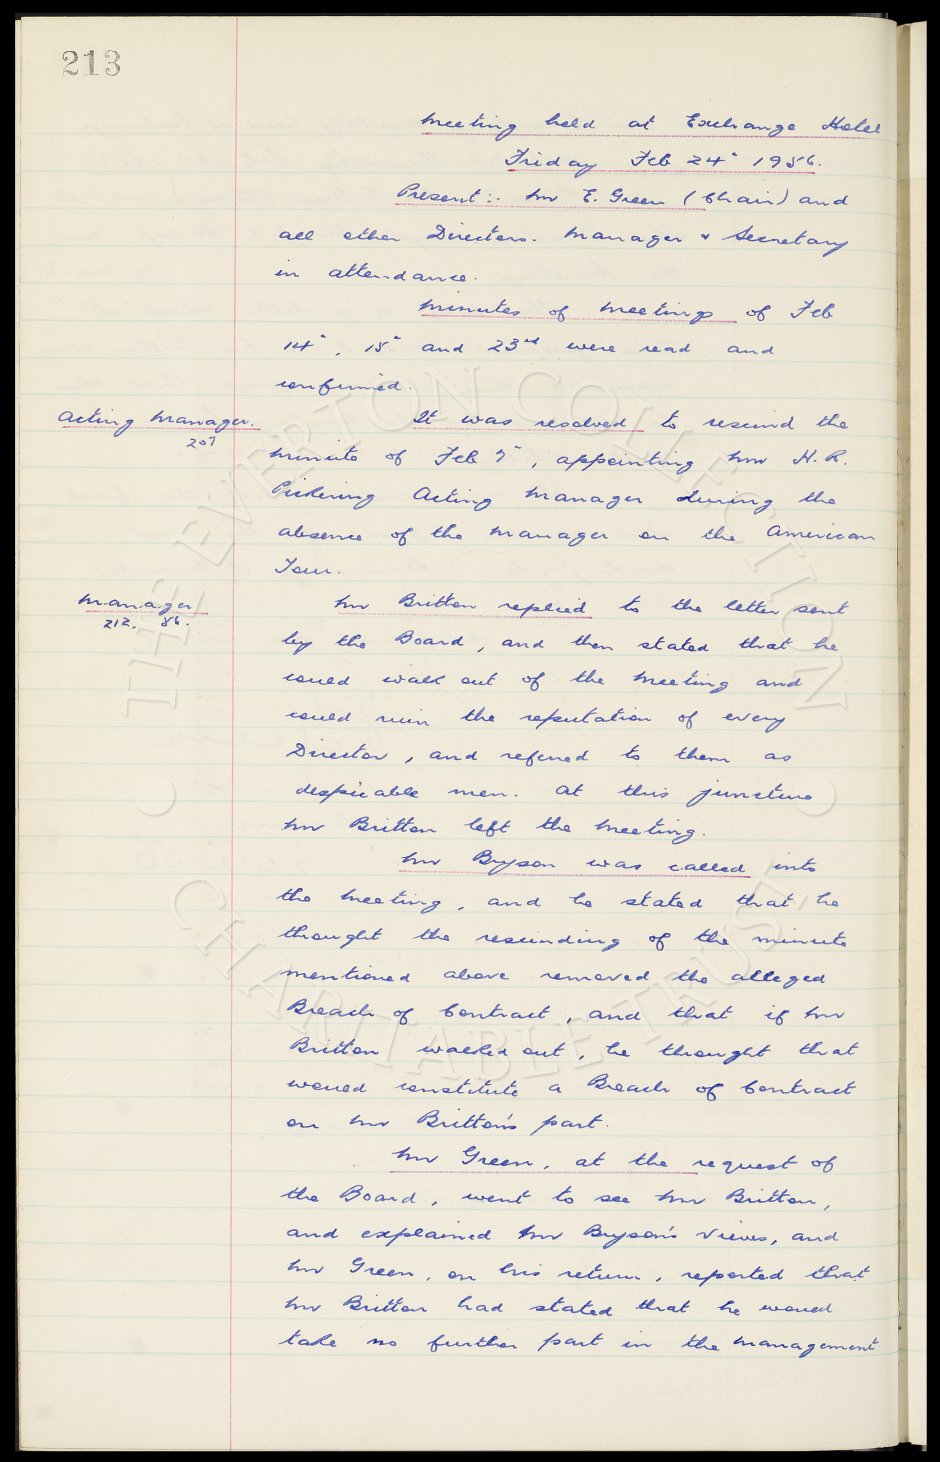 213
Meeting held at Exchange Hotel
Friday Feb 24" 1956.
Present:- Mr E. Green (Chair) and
all other Directors. Manager & Secretary
in attendance.
Minutes of Meetings of Feb
14", 15" and 23rd were read and
confirmed.
Acting Manager.
207
It was resolved to rescind the
Minute of Feb 7", appointing Mr H. R.
Pickering Acting Manager during the
absence of the Manager on the American
Tour.
Manager
212. 86.
Mr Britton replied to the letter sent
by the Board, and then stated that he
could walk out of the Meeting and
could ruin the reputation of every
Director, and referred to them as
despicable men. At this juncture
Mr Britton left the Meeting.
Mr Bryson was called into
the Meeting, and he stated that he
thought the rescinding of the minute
mentioned above removed the alleged
Breach of Contract, and that if Mr
Britton walked out, he thought that
would constitute a Breach of Contract
on Mr Britton's part.
Mr Green, at the request of
the Board, went to see Mr Britton,
and explained Mr Bryson's views, and
Mr Green, on his return, reported that
Mr Britton had stated that he would
take no further part in the Management
THE EVERTON COLLECTION
CHARITABLE TRUST